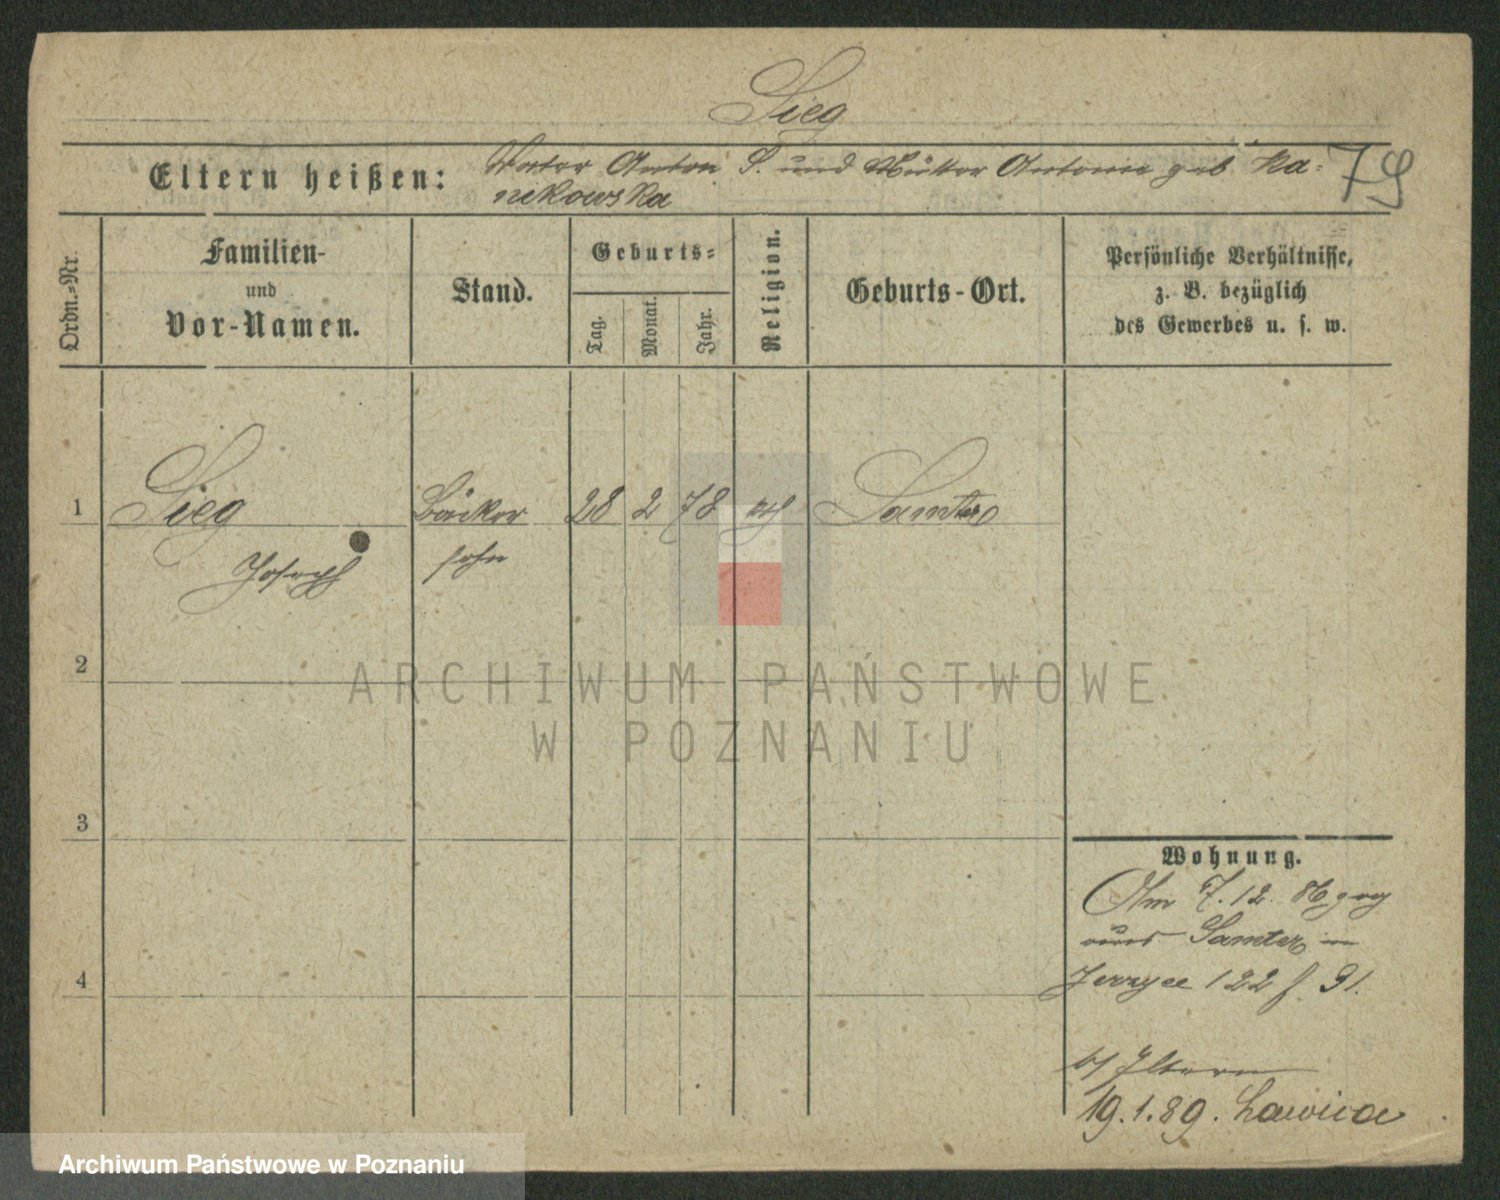 Sieg
Eltern heißen: Vater Anton S. und Mutter Antonie geb Ka=
nikowska
79
Ordn.=Nr.
Familien-
und
Vor-Namen.
Stand.
Geburts=
Tag.
Monat.
Jahr.
Religion.
Geburts-Ort.
Persönliche Verhältnisse,
z. B. bezüglich
des Gewerbes u. s. w.
1 Sieg Bäcker 28 2 78 kth Samter
Joseph sohn
2
3
4
ARCHIWUM PAŃSTWOWE
W POZNANIU
Wohnung.
Am 7.12. 86 zog
aus Samter in
Jerzyce 122 f. 91.
b/ Eltern
19.1.89. Lawica
Archiwum Państwowe w Poznaniu